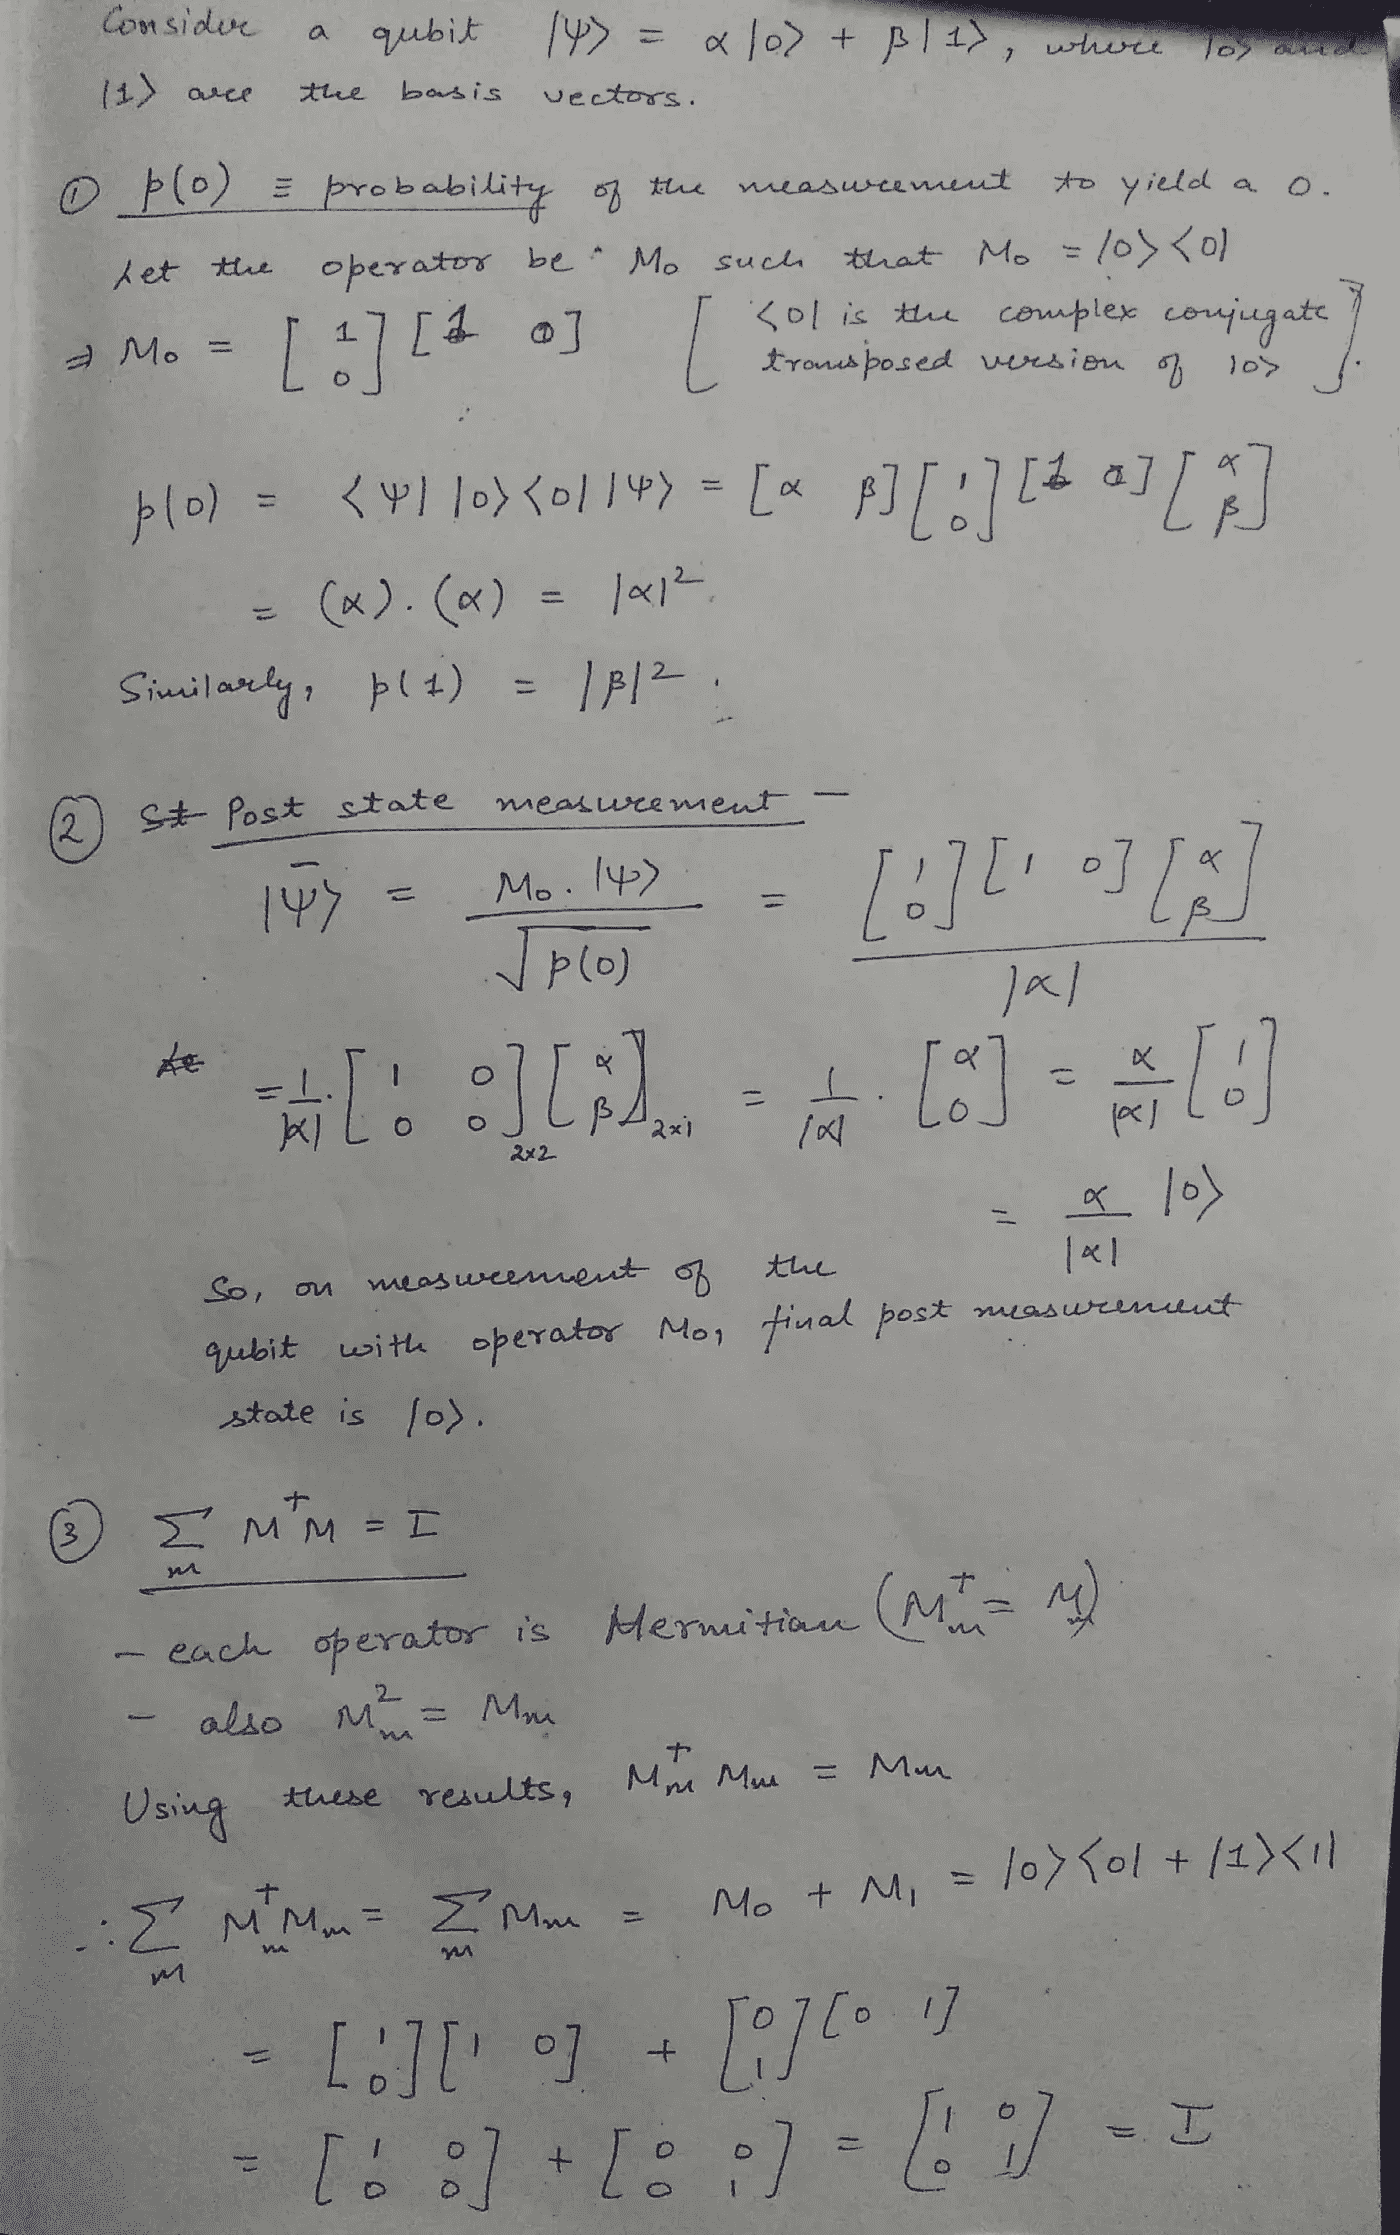 Consider a qubit |ψ> = α|0> + β|1>, where |0> and
|1> are the basis vectors.
① p(0) ≡ probability of the measurement to yield a 0.
Let the operator be M₀ such that M₀ = |0><0|
⇒ M₀ = [1 0] [1 0] [<0| is the complex conjugate
transposed version of |0>].
p(0) = <ψ||0><0||ψ> = [α β] [1 0] [1 0] [α β]
= (α).(α) = |α|².
Similarly, p(1) = |β|².
② St Post state measurement –
|ψ̄> = M₀.|ψ> / √p(0) = [1 0] [1 0] [α β] / |α|
Le = 1/|α| . [1 0 0 0]2x2 [α β]2x1 = 1/|α| . [α 0] = α/|α| [1 0]
= α/|α| |0>
So, on measurement of the
qubit with operator M₀, final post measurement
state is |0>.
③ Σm M†M = I
– each operator is Hermitian (M†m = Mm)
– also M²m = Mm
Using these results, M†m Mm = Mm
∴ Σm M†m Mm = Σm Mm = M₀ + M₁ = |0><0| + |1><1|
= [1 0] [1 0] + [0 1] [0 1]
= [1 0 0 0] + [0 0 0 1] = [1 0 0 1] = I